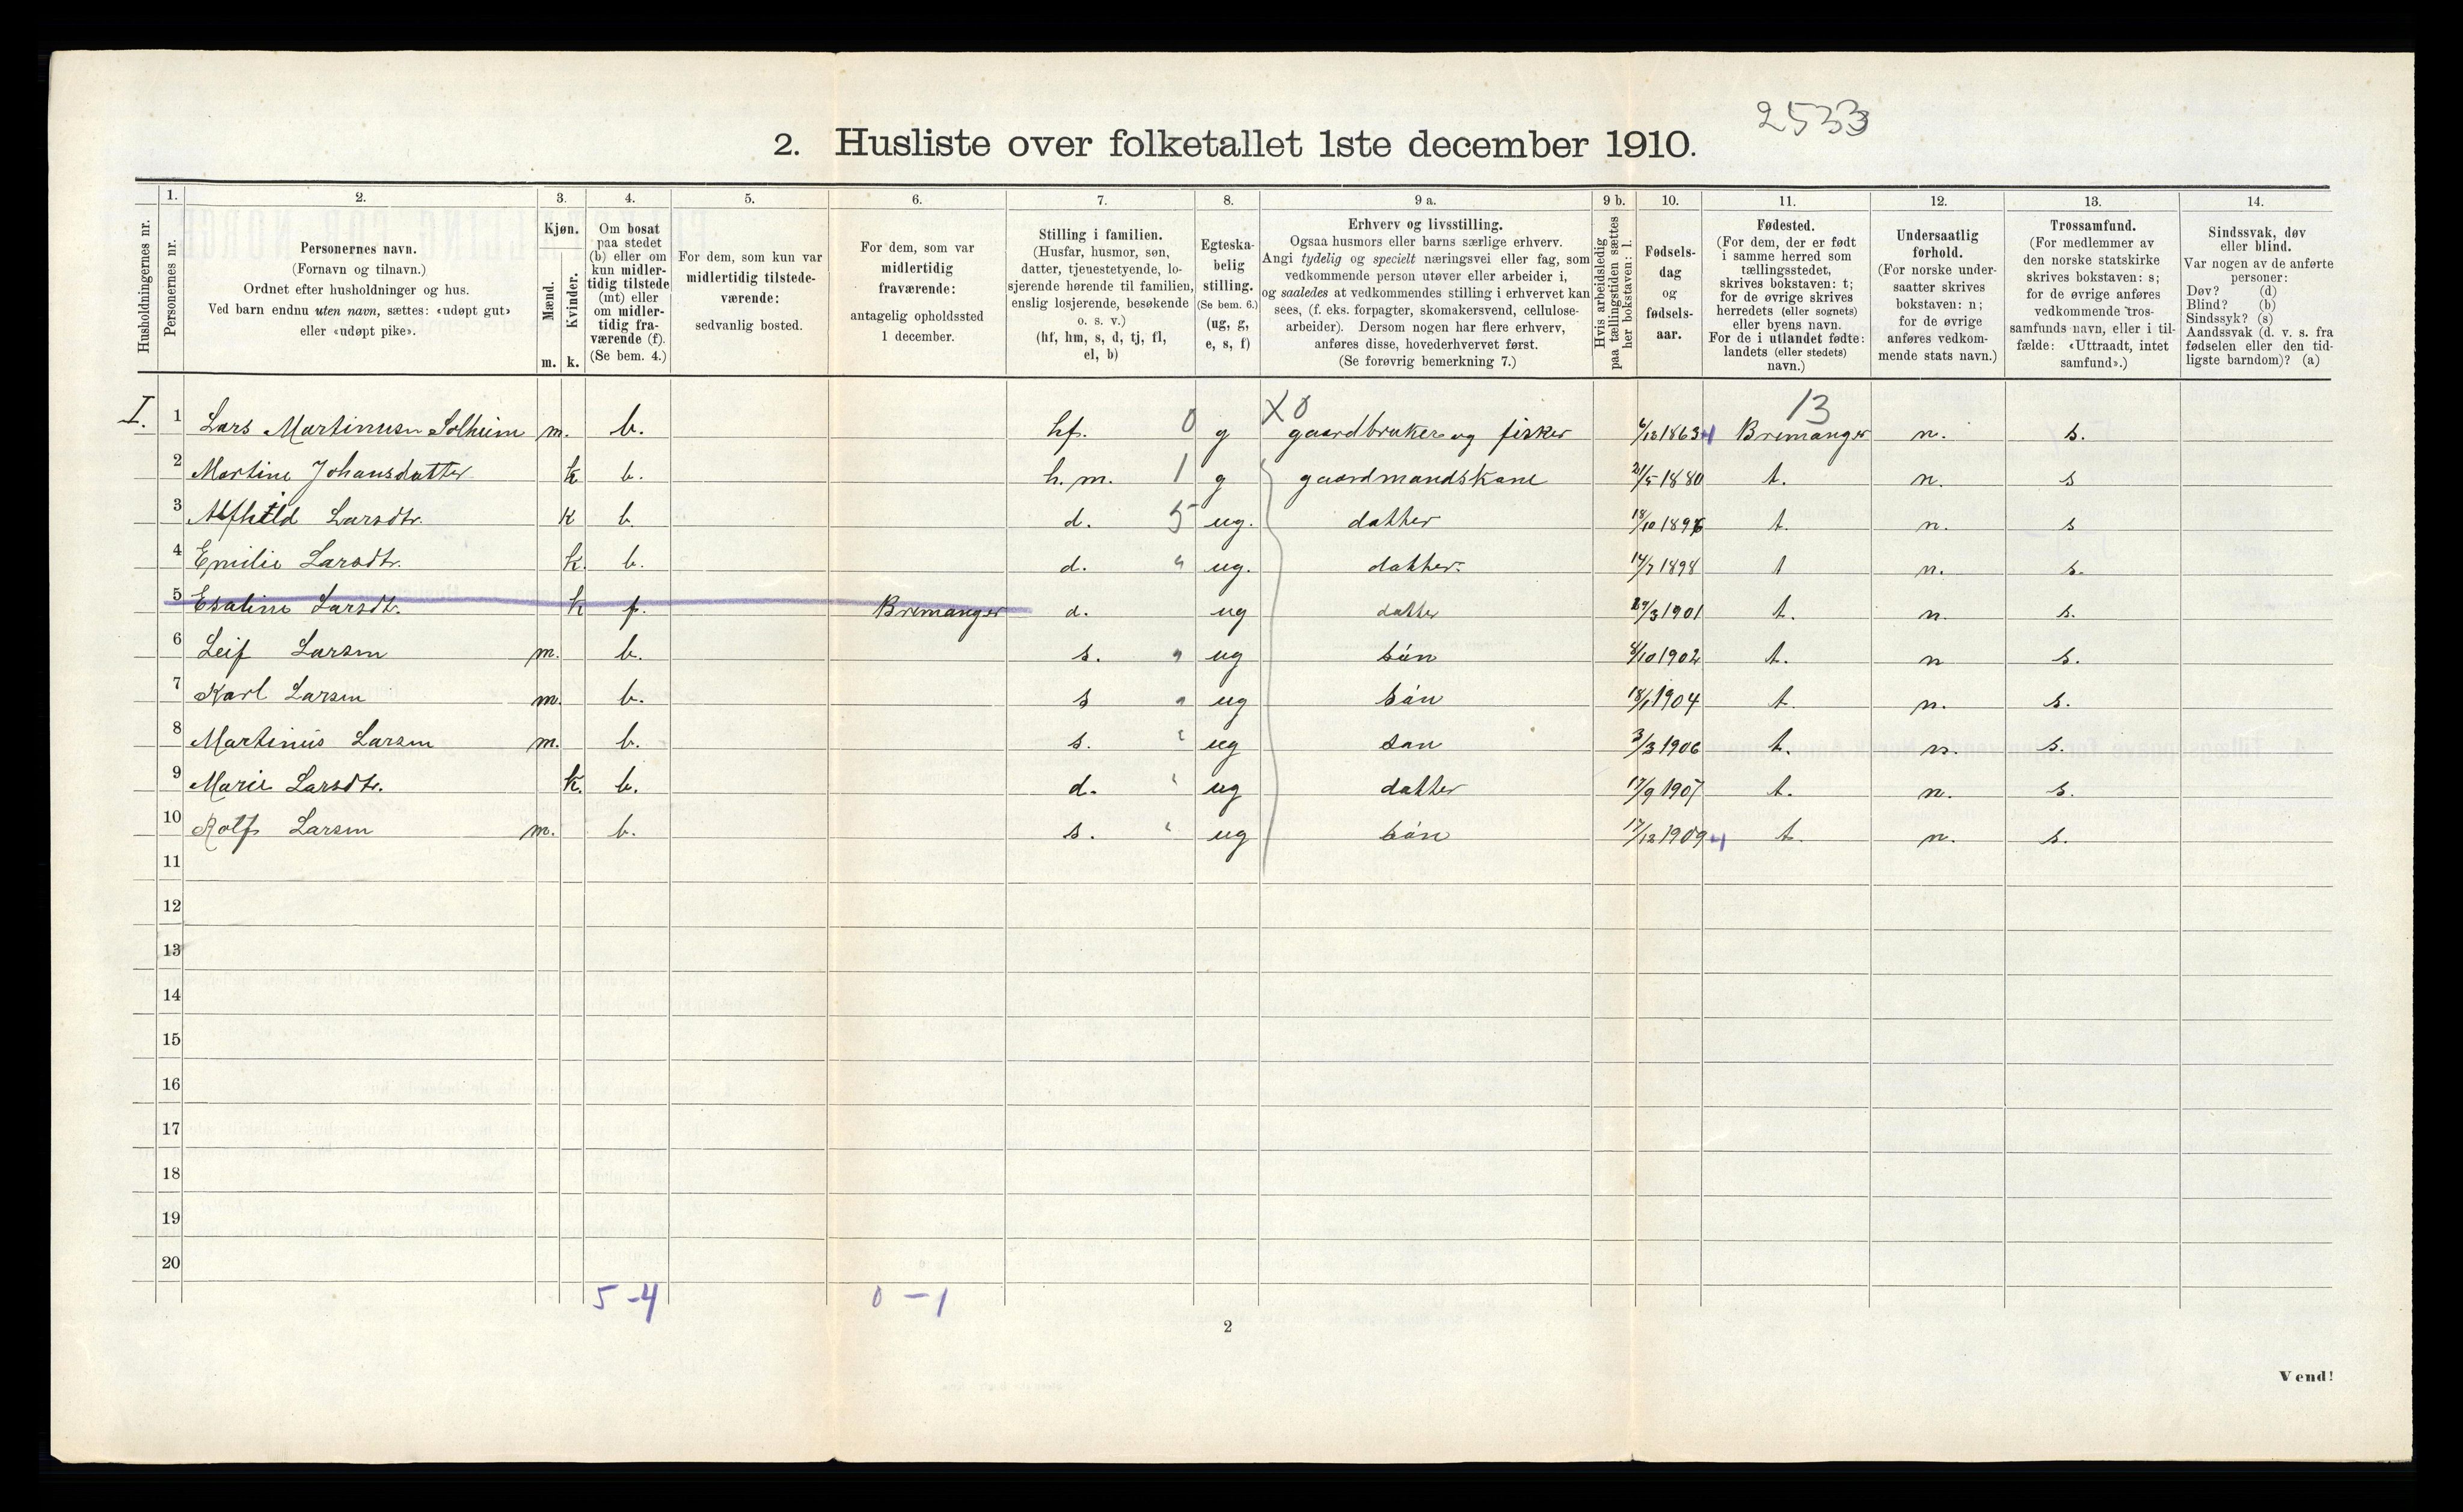 2533
2. Husliste over folketallet 1ste december 1910.
Husholdningernes nr.
1.
Personernes nr.
2.
Personernes navn.
(Fornavn og tilnavn.)
Ordnet efter husholdninger og hus.
Ved barn endnu uten navn, sættes: «udøpt gut»
eller «udøpt pike».
3.
Kjøn.
Mænd.
Kvinder.
m. k.
4.
Om bosat
paa stedet
(b) eller om
kun midler-
tidig tilstede
(mt) eller
om midler-
tidig fra-
værende (f).
(Se bem. 4.)
5.
For dem, som kun var
midlertidig tilstede-
værende:
sedvanlig bosted.
6.
For dem, som var
midlertidig
fraværende:
antagelig opholdssted
1 december.
7.
Stilling i familien.
(Husfar, husmor, søn,
datter, tjenestetyende, lo-
sjerende hørende til familien,
enslig losjerende, besøkende
o. s. v.)
(hf, hm, s, d, tj, fl,
el, b)
8.
Egteska-
belig
stilling.
(Se bem. 6.)
(ug, g,
e, s, f)
9 a.
Erhverv og livsstilling.
Ogsaa husmors eller barns særlige erhverv.
Angi tydelig og specielt næringsvei eller fag, som
vedkommende person utøver eller arbeider i,
og saaledes at vedkommendes stilling i erhvervet kan
sees, (f. eks. forpagter, skomakersvend, cellulose-
arbeider). Dersom nogen har flere erhverv,
anføres disse, hovederhvervet først.
(Se forøvrig bemerkning 7.)
9 b.
Hvis arbeidsledig
paa tællingstiden sættes
her bokstaven: l.
10.
Fødsels-
dag
og
fødsels-
aar.
11.
Fødested.
(For dem, der er født
i samme herred som
tællingsstedet,
skrives bokstaven: t;
for de øvrige skrives
herredets (eller sognets)
eller byens navn.
For de i utlandet fødte:
landets (eller stedets)
navn.)
12.
Undersaatlig
forhold.
(For norske under-
saatter skrives
bokstaven: n;
for de øvrige
anføres vedkom-
mende stats navn.)
13.
Trossamfund.
(For medlemmer av
den norske statskirke
skrives bokstaven: s;
for de øvrige anføres
vedkommende tros-
samfunds navn, eller i til-
fælde: «Uttraadt, intet
samfund».)
14.
Sindssvak, døv
eller blind.
Var nogen av de anførte
personer:
Døv? (d)
Blind? (b)
Sindssyk? (s)
Aandssvak (d. v. s. fra
fødselen eller den tid-
ligste barndom)? (a)
X0 13
I. 1 Lars Martinusen Solheim m. b. hf. 0 g gaardbruker og fisker 6/12 1863 Bremanger n. s.
2 Martine Johansdatter k b. h. m. 1 g gaardmandskone 21/5 1880 t. n. s
3 Alfhild Larsdtr. k b. d. 5 ug. datter 18/10 1896 t. n. s
4 Emilie Larsdtr. k. b. d. " ug. datter 14/7 1898 t n. s.
5 Esaline Larsdtr. k f. Bremanger d. ug datter 29/3 1901 t. n. s.
6 Leif Larsen m. b. s. " ug sön 8/10 1902 t. n s.
7 Karl Larsen m. b. s " ug sön 18/1 1904 t. n. s.
8 Martinius Larsen m. b. s. " ug sön 3/3 1906 t. n. s.
9 Marie Larsdtr. k. b. d. " ug datter 17/9 1907 t. n. s.
10 Rolf Larsen m. b. s. " ug sön 17/12 1909 t. n. s.
11
12
13
14
15
16
17
18
19
20
5 - 4 0 - 1
2
Vend!